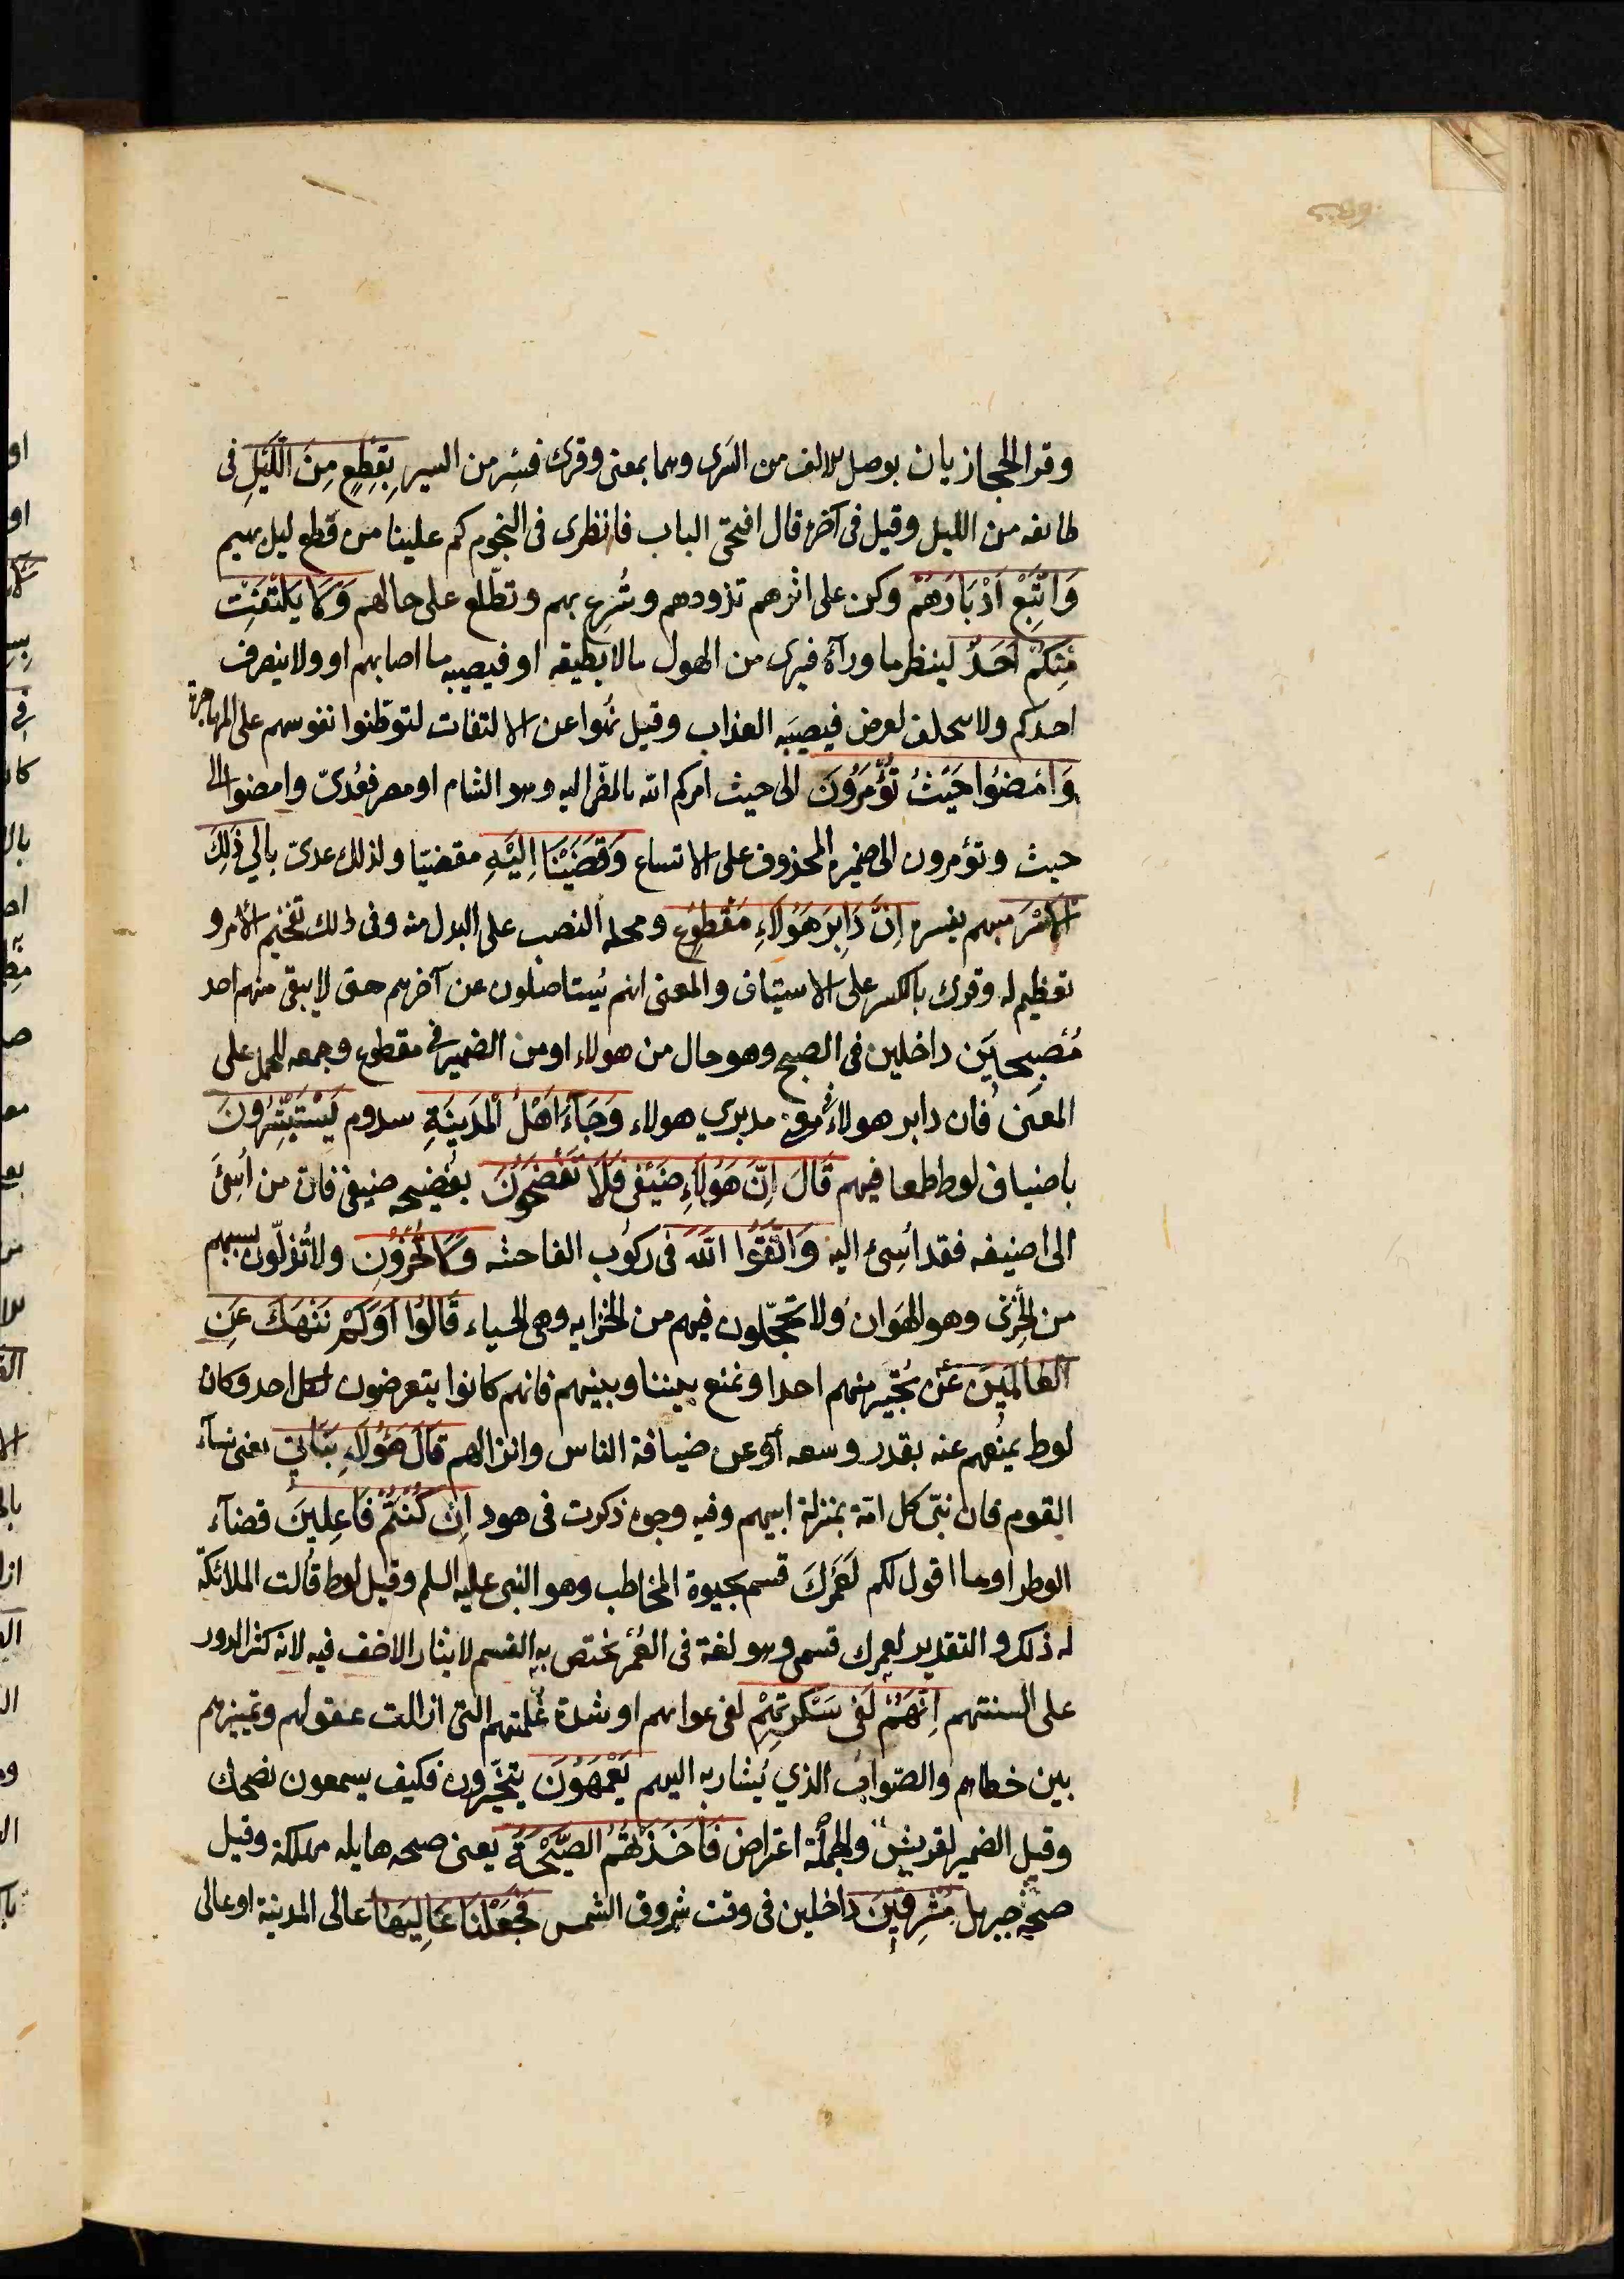 وقرا الحجازيان بوصل الالف من السرى وهما بمعنى وقرئ فسر من السير بِقِطْعٍ مِنَ اللَّيْلِ فى
طائفه من الليل وقيل فى آخره قال افتحى الباب فانظرى فى النجوم كم علينا من قطع ليل بهيم
وَاتَّبِعْ اَدْبَارَهُمْ وكن على اثرهم تذودهم وتُسرع بهم وتطّلع على حالهم وَلَا يَلْتَفِتْ
مِنْكُمْ اَحَدٌ لينظر ما ورآه فيرى من الهول مالا يطيقه او فيصيبه ما اصابهم او ولا ينصرف
احدكم ولا يتخلف لغرض فيصيبَه العذاب وقيل نُهوا عن الالتفات لتوطّنوا نفوسهم على المهاجرة
وَامْضُوا حَيْثُ تُؤْمَرُونَ الى حيث امركم الله بالمضى اليه وهو الشام او مصر فعُدىّ وامضوا الى
حيث وتؤمرون الى ضميره المحذوف على الاتساع وَقَضَيْنَا اِلَيْهِ مقضيّا ولذلك عدى بالى ذٰلِكَ
الْاَمْرَ مبهم يفسره اِنَّ دَابِرَ هٰؤُلَاءِ مَقْطُوعٌ ومحله النصب على البدل منه وفى ذلك تفخيم الامر و
تعظيم له وقرئ بالكسر على الاستيناف والمعنى انهم يُستاصلون عن آخرهم حتى لا يبقى منهم احد
مُصْبِحِينَ داخلين فى الصبح وهو حال من هولاء او من الضمير فى مقطوع وجمعه للحمل على
المعنى فان دابر هولاء فى معنى مدبري هولاء وَجَآءَ اَهْلُ الْمَدِينَةِ سدوم يَسْتَبْشِرُونَ
باضياف لوط طمعا فيهم قَالَ اِنَّ هٰؤُلَآءِ ضَيْفِى فَلَا تَفْضَحُونِ بفضيحه ضيفى فان من اُسِئَ
الى ضيفه فقد اُسِئ اليه وَاتَّقُوا اللّٰهَ فى ركوب الفاحشه وَلَا تُخْزُونِ ولا تُذلّون بسببهم
من الخِزى وهو الهَوان ولا تخجّلون فيهم من الخزايه وهى الحياء قَالُوا اَوَلَمْ نَنْهَكَ عَنِ
الْعَالَمِينَ عن تُجيرَ منهم احدا وتمنع بيننا وبينهم فانهم كانوا يتعرضون لكل احد وكان
لوط يمنعهم عنه بقدر وسعه او عن ضيافة الناس وانزالهم قَالَ هٰؤُلَآءِ بَنَاتِى يعنى نسآء
القوم فان نبىّ كل امّة بمنزلة ابيهم وفيه وجوه ذكرت فى هود اِنْ كُنْتُمْ فَاعِلِينَ قضآء
الوطر او ما اقول لكم لَعَمْرُكَ قسم بحيوة المخاطب وهو النبى عليه السلم وقيل لوط قالت الملائكة
له ذلك والتقدير لعمرك قسمى وهو لغة فى العُمر يختص به القسم لايثار الاخف فيه لانه كثر الدور
على السنتهم اِنَّهُمْ لَفِى سَكْرَتِهِمْ لفى غوايتهم او شدة غُلمتهم التى ازالت عقولهم وتمييزهم
بين خطاهم والصّواب الذي يُشار به اليهم يَعْمَهُونَ يتحيّرون فكيف يسمعون نصحك
وقيل الضمير لقريش والجملة اعتراض فَاَخَذَتْهُمُ الصَّيْحَةُ يعنى صيحه هايله مهلكة وقيل
صيحة جبريل مُشْرِقِينَ داخلين فى وقت شروق الشمس فَجَعَلْنَا عَالِيَهَا عالى المدينة او عالى